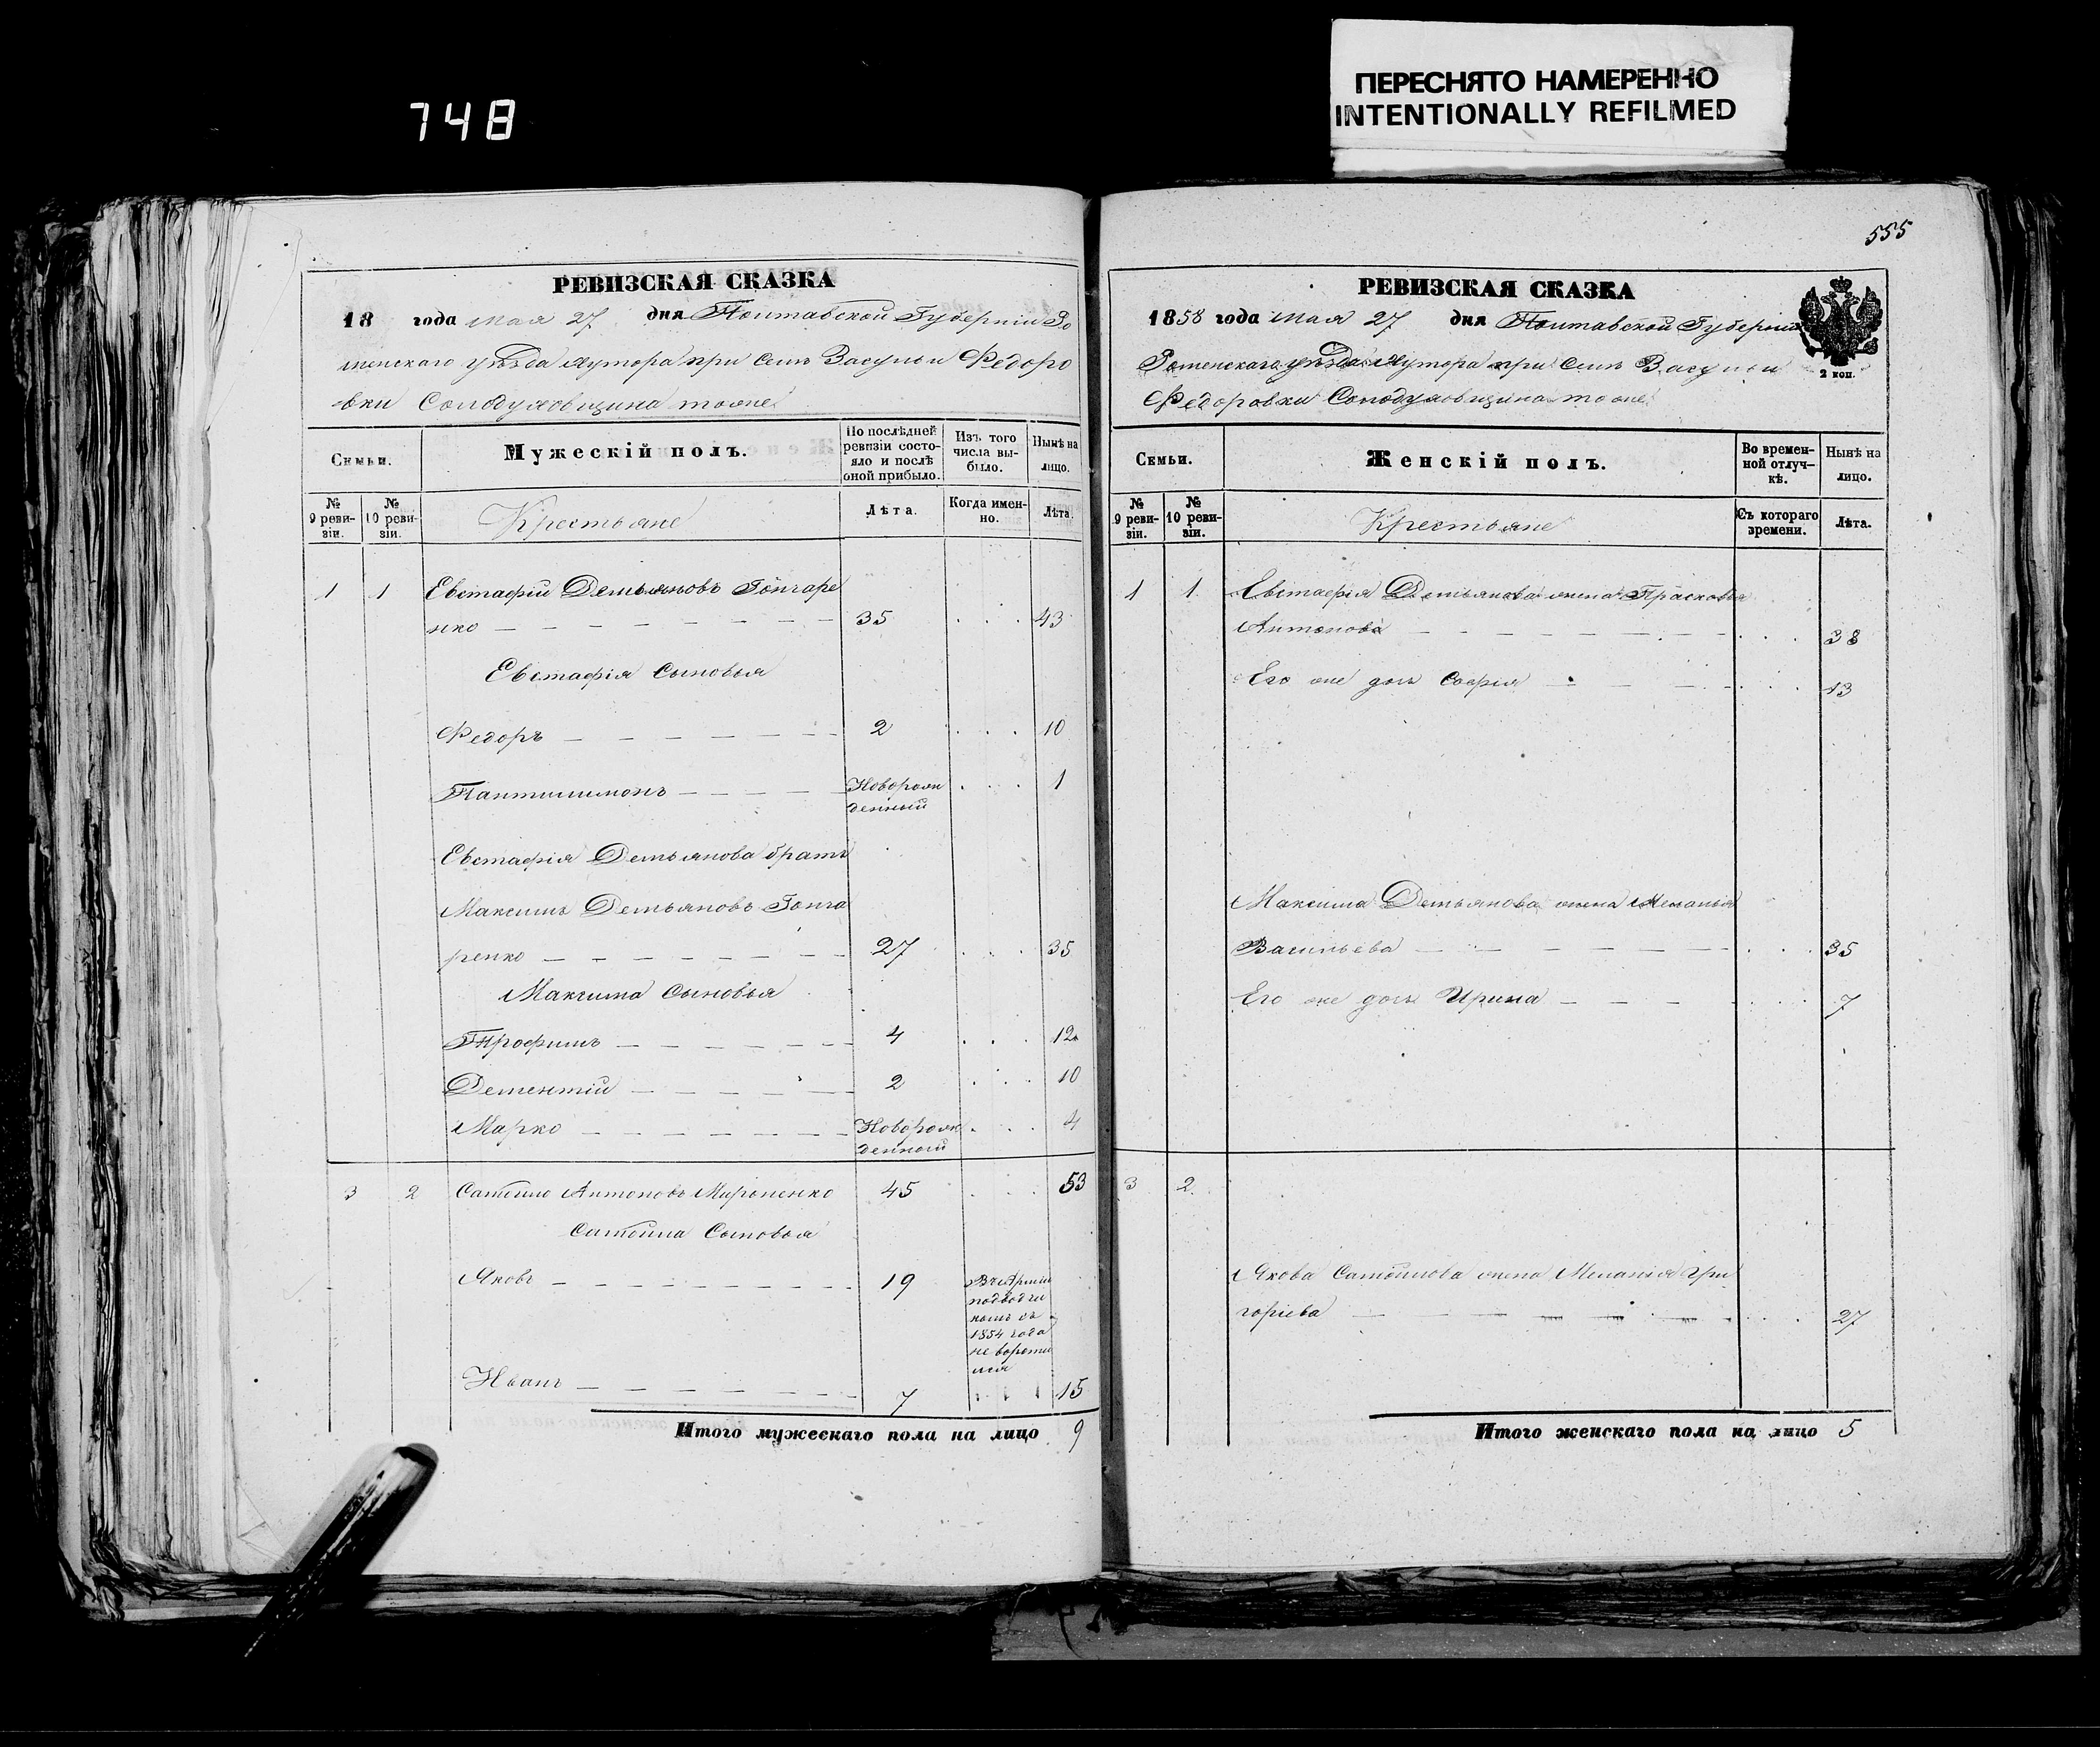 748
ПЕРЕСНЯТО НАМЕРЕННО
INTENTIONALLY REFILMED
РЕВИЗСКАЯ СКАЗКА
18 года Мая 27 дня Полтавской Губерніи Ро
менскаго уѣзда Хутора при селѣ Засульи Федоро
вки Солодуховщина тоже
Семьи.
Мужескій полъ.
По послѣдней ревизіи состояло и послѣ оной прибыло.
Изъ того числа выбыло.
Нынѣ на лицо.
№ 9 ревизіи.
№ 10 ревизіи.
Крестьяне
Лѣта.
Когда именно.
Лѣта.
1 1 Евстафій Демьяновъ Гончаре
нко 35 43
Евстафія Сыновья
Федоръ 2 10
Пантилимонъ Новорож 1
денный
Евстафія Демьянова братъ
Максимъ Демьяновъ Гонча
ренко 27 35
Максима Сыновья
Трофимъ 4 12
Дементій 2 10
Марко Новорож 4
денный
3 2 Самойло Антоновъ Мироненко 45 53
Самойла Сыновья
Яковъ 19 Въ Арміи
подводчи
комъ съ
1854 года
не вороти
лся
Иванъ 7 15
Итого мужескаго пола на лицо 9
555
РЕВИЗСКАЯ СКАЗКА
1858 года Мая 27 дня Полтавской Губерніи
Роменскаго уѣзда Хутора при селѣ Засульи
Федоровки Солодуховщина тоже
2 коп.
Семьи.
Женскій полъ.
Во временной отлучкѣ.
Нынѣ на лицо.
№ 9 ревизіи.
№ 10 ревизіи.
Крестьяне
Съ котораго времени.
Лѣта.
1 1 Евстафія Демьянова жена Прасковья
Антонова 38
Его же дочь Софія 13
Максима Демьянова жена Меланья
Васильева 35
Его же дочь Ирина 7
3 2
Якова Самойлова жена Меланія Гри
горіева 27
Итого женскаго пола на лицо 5